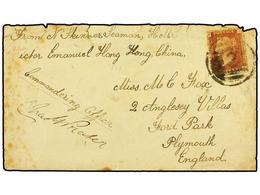 From N Skinner Seaman, H.M.S
Victor Emanuel Hong Kong, China,
Commandering Officer
Miss. M. E. Fox
2 Anglesey Villas
Ford Park
Plymouth
England.